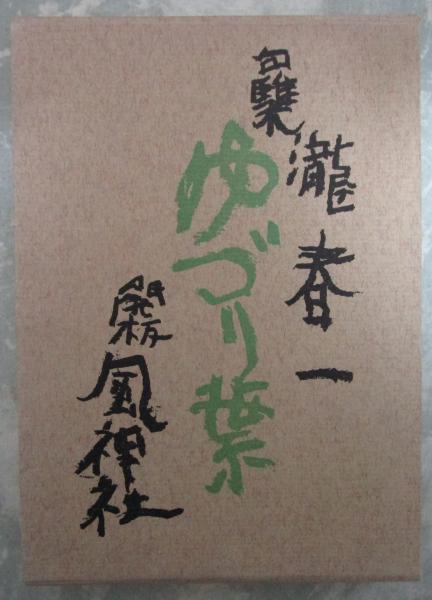 句集 瀧春一
ゆづり葉
風神社